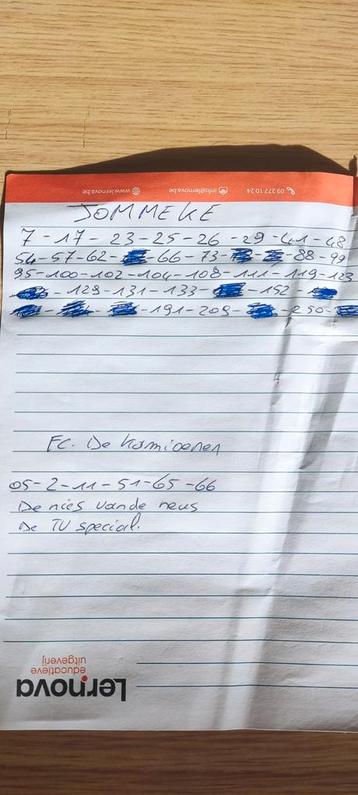 09 277 10 24 info@lernova.be www.lernova.be
JOMMEKE
7 - 17 - 23 - 25 - 26 - 29 - 41 - 48
54 - 57 - 62 - - 66 - 73 - - - 88 - 99
95 - 100 - 102 - 104 - 108 - 111 - 119 - 123
- 129 - 131 - 133 - - 152 -
- - - 191 - 209 - - 250 -
FC. De Kampioenen
05 - 2 - 11 - 51 - 65 - 66
De nies vande neus
De TV special.
Lernova
educatieve
uitgeverij